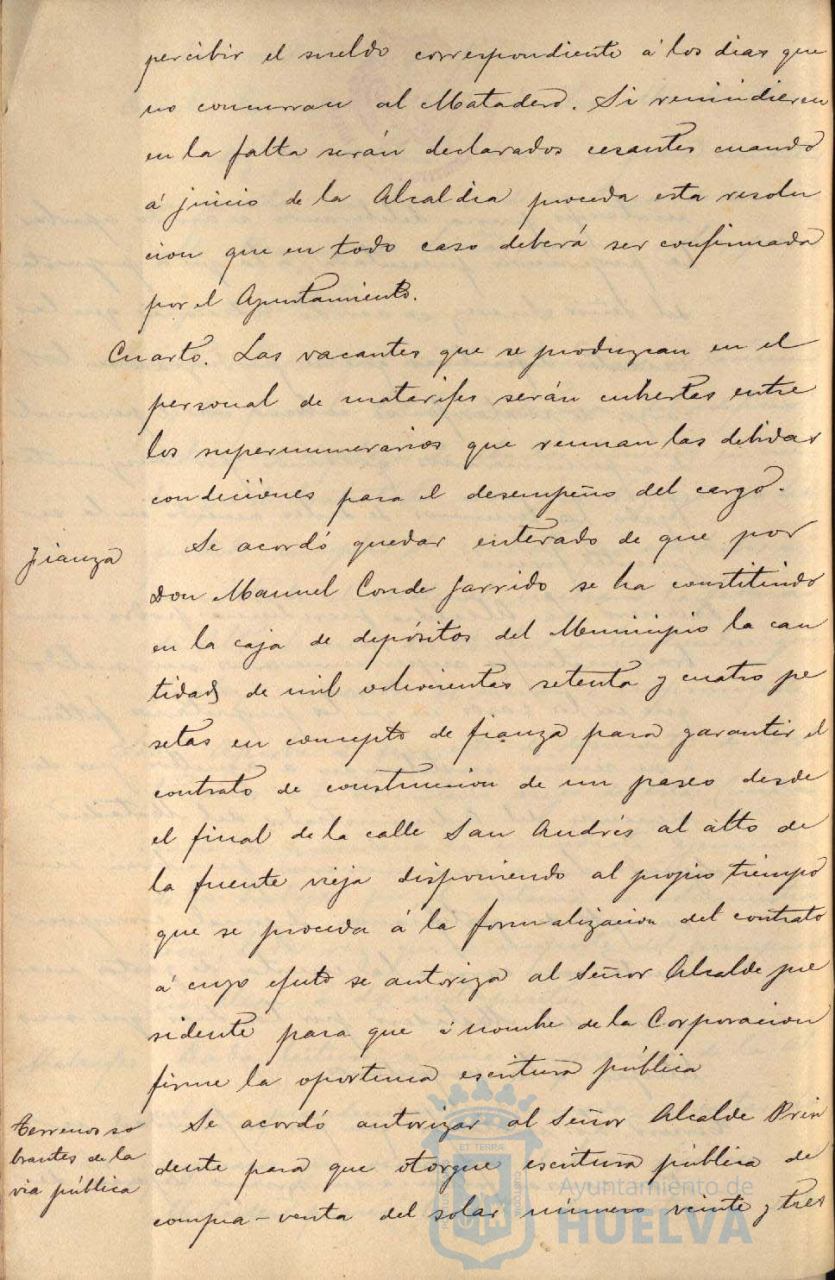 percibir el sueldo correspondiente á los dias que
no concurran al Matadero. Si reincidieren
en la falta serán declarados cesantes cuando
á juicio de la Alcaldia proceda esta resolu
cion que en todo caso deberá ser confirmada
por el Ayuntamiento.
Cuarto. Las vacantes que se produzcan en el
personal de matarifes serán cubiertas entre
los supernumerarios que reunan las debidas
condiciones para el desempeño del cargo.
Fianza
Se acordó quedar enterado de que por
Don Manuel Conde Garrido se ha constituido
en la caja de depósitos del Municipio la can
tidad de mil ochocientas setenta y cuatro pe
setas en concepto de fianza para garantir el
contrato de construccion de un paseo desde
el final de la calle San Andrés al alto de
la fuente vieja disponiendo al propio tiempo
que se proceda á la formalizacion del contrato
á cuyo efecto se autoriza al Señor Alcalde pre
sidente para que á nombre de la Corporacion
firme la oportuna escritura pública
Terrenos so
brantes de la
via pública
Se acordó autorizar al Señor Alcalde Presi
dente para que otorgue escritura pública de
compra-venta del solar número veinte y tres
ET TERRA
Ayuntamiento de
HUELVA